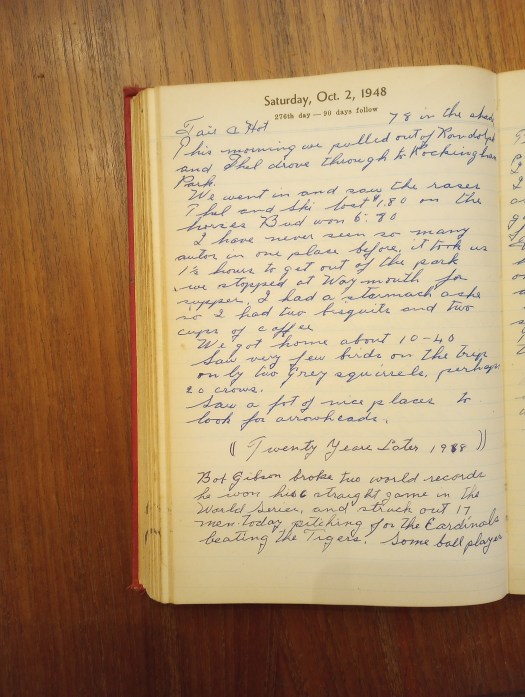 Saturday, Oct. 2, 1948
276th day — 90 days follow
Fair & Hot 78 in the shade
This morning we pulled out of Randolph
and Thel drove through to Rockingham
Park.
We went in and saw the rases
Thel and Ski lost $1.80 on the
horses Bud won 6.80
I have never seen so many
autos in one plase before, it took us
1½ hours to get out of the park
we stopped at Waymouth for
supper. I had a stormach ashe
so I had two bisquits and two
cups of coffee
We got home about 10-40
Saw very few birds on the trip
only two Grey squirrels, perhaps
20 crows.
Saw a lot of nice places to
look for arrowheads.
(( Twenty Years Later ))
Bob Gibson broke two world records
he won his 6 straight game in the
World Series, and struck out 17
men today pitching for the Cardinals
beating the Tigers. Some ball player